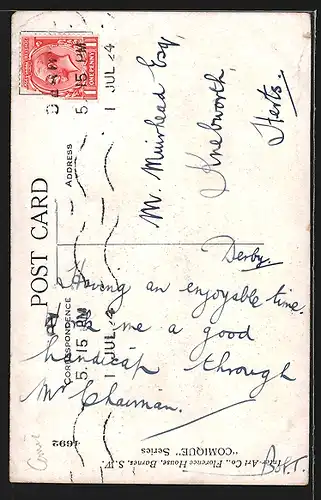 POST CARD
CORRESPONDENCE
ADDRESS
ONE PENNY
5.15 PM
1 JUL 24
5.15 PM
1 JUL 24
M. Muirhead Esq,
Knebworth,
Herts.
Derby.
Having an enjoyable time.
me a good
handicap through
Mr Chairman.
B.&.T.
4692
"COMIQUE" Series
Inter-Art Co., Florence House, Barnes, S.W.